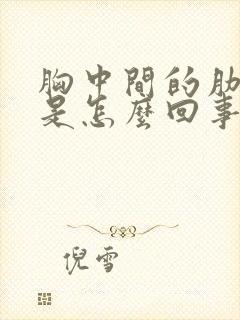 胸中間的肋
是怎麼回事
倪雪